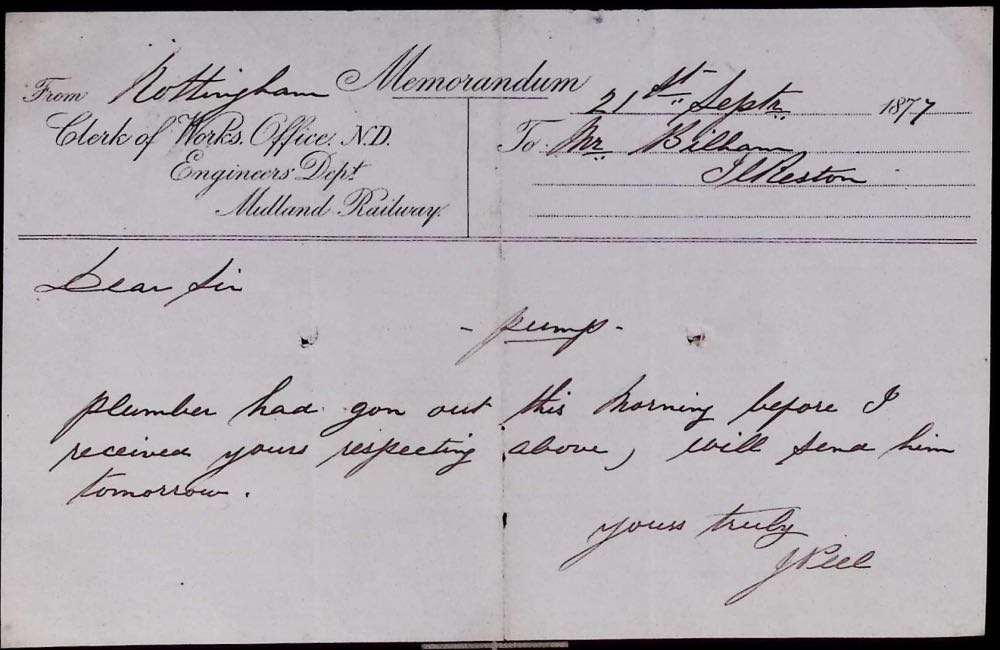 Memorandum
From Nottingham
21st Septr 1877
Clerk of Works. Office. N.D.
Engineers Dept
Midland Railway.
To Mr Bilham
Ilkeston
Dear Sir
- pump -
plumber had gon out this morning before I
received yours respecting above, will send him
tomorrow.
yours truly
J Peel